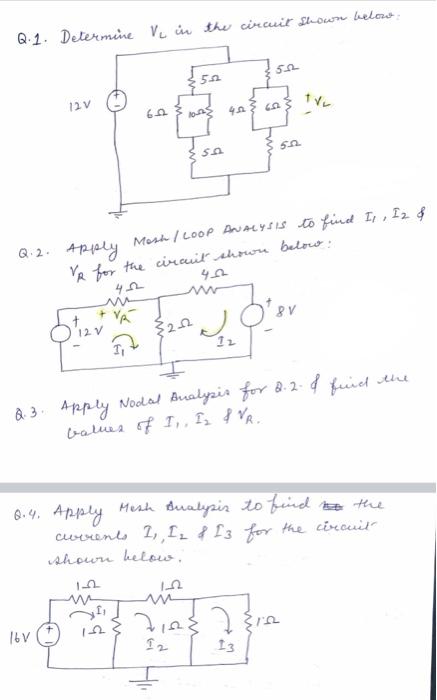 Q.1. Determine VL in the circuit shown below:
5Ω 5Ω
12V + 6Ω 10Ω 4Ω 6Ω + VL -
5Ω 5Ω
Q.2. Apply Mesh/LOOP ANALYSIS to find I1, I2 &
VR for the circuit shown below:
4Ω 4Ω
+ VR -
+ 12V - 2Ω + 8V -
I1 I2
Q.3. Apply Nodal Analysis for Q.2. & find the
values of I1, I2 & VR.
Q.4. Apply Mesh Analysis to find the
currents I1, I2 & I3 for the circuit
shown below.
1Ω 1Ω
I1
16V + 1Ω 1Ω 1Ω
I2 I3